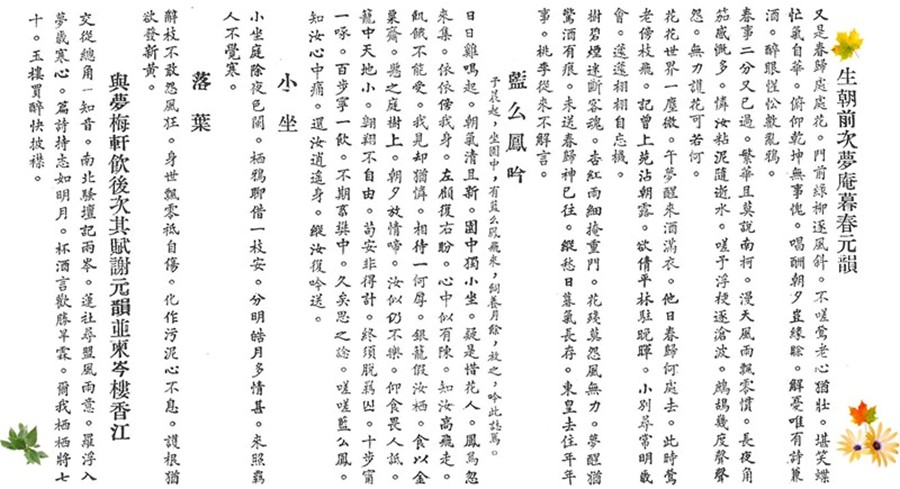 生朝前次夢庵暮春元韻
又是春歸處處花。門前綠柳逐風斜。不嗟鶯老心猶壯。堪笑蝶
忙氣自華。俯仰乾坤無事愧。唱酬朝夕豈緣賒。解憂唯有詩兼
酒。醉眼惺忪數亂鴉。
春事二分又已過。繁華且莫說南柯。漫天風雨飄零慣。長夜角
笳感慨多。憐汝粘泥隨逝水。嗟予浮梗逐滄波。鷓鴣幾度聲聲
怨。無力護花可若何。
花花世界一塵微。午夢醒來酒滿衣。他日春歸何處去。此時鶯
老傍枝飛。記曾上苑沾朝露。欲倩平林駐晚暉。小別尋常明歲
會。蘧蘧栩栩自忘機。
樹碧煙迷斷客魂。杏紅雨細掩重門。花殘莫怨風無力。夢醒猶
驚酒有痕。未送春歸神已往。縱愁日暮氣長存。東皇去住年年
事。桃李從來不解言。
藍么鳳吟
予晨起，坐園中，有藍么鳳飛來，飼養月餘，放之，吟此誌焉。
日日雞鳴起。朝氣清且新。園中獨小坐。疑是惜花人。鳳鳥忽
來集。依依傍我身。左顧復右盼。心中似有陳。知汝高飛走。
飢餓不能受。我見却猶憐。相待一何厚。銀籠假汝栖。食以金
粟齋。懸之庭樹上。朝夕放情啼。汝似仍不樂。仰食畏人詆。
籠中天地小。翱翔不自由。苟安非得計。終須脫羈囚。十步甯
一啄。百步寧一飲。不期畜樊中。久矣思之諗。嗟嗟藍么鳳。
知汝心中痛。還汝逍遙身。縱汝復吟送。
小坐
小坐庭除夜色闌。栖鴉聊借一枝安。分明皓月多情甚。來照羈
人不覺寒。
落葉
辭枝不敢怨風狂。身世飄零祇自傷。化作污泥心不息。護根猶
欲發新黃。
與夢梅軒飲後次其賦謝元韻並柬岑樓香江
交從總角一知音。南北騷壇記兩岑。蓮社尋盟風雨意。羅浮入
夢歲寒心。篇詩持志如明月。杯酒言歡勝旱霖。爾我栖栖將七
十。玉樓買醉快披襟。